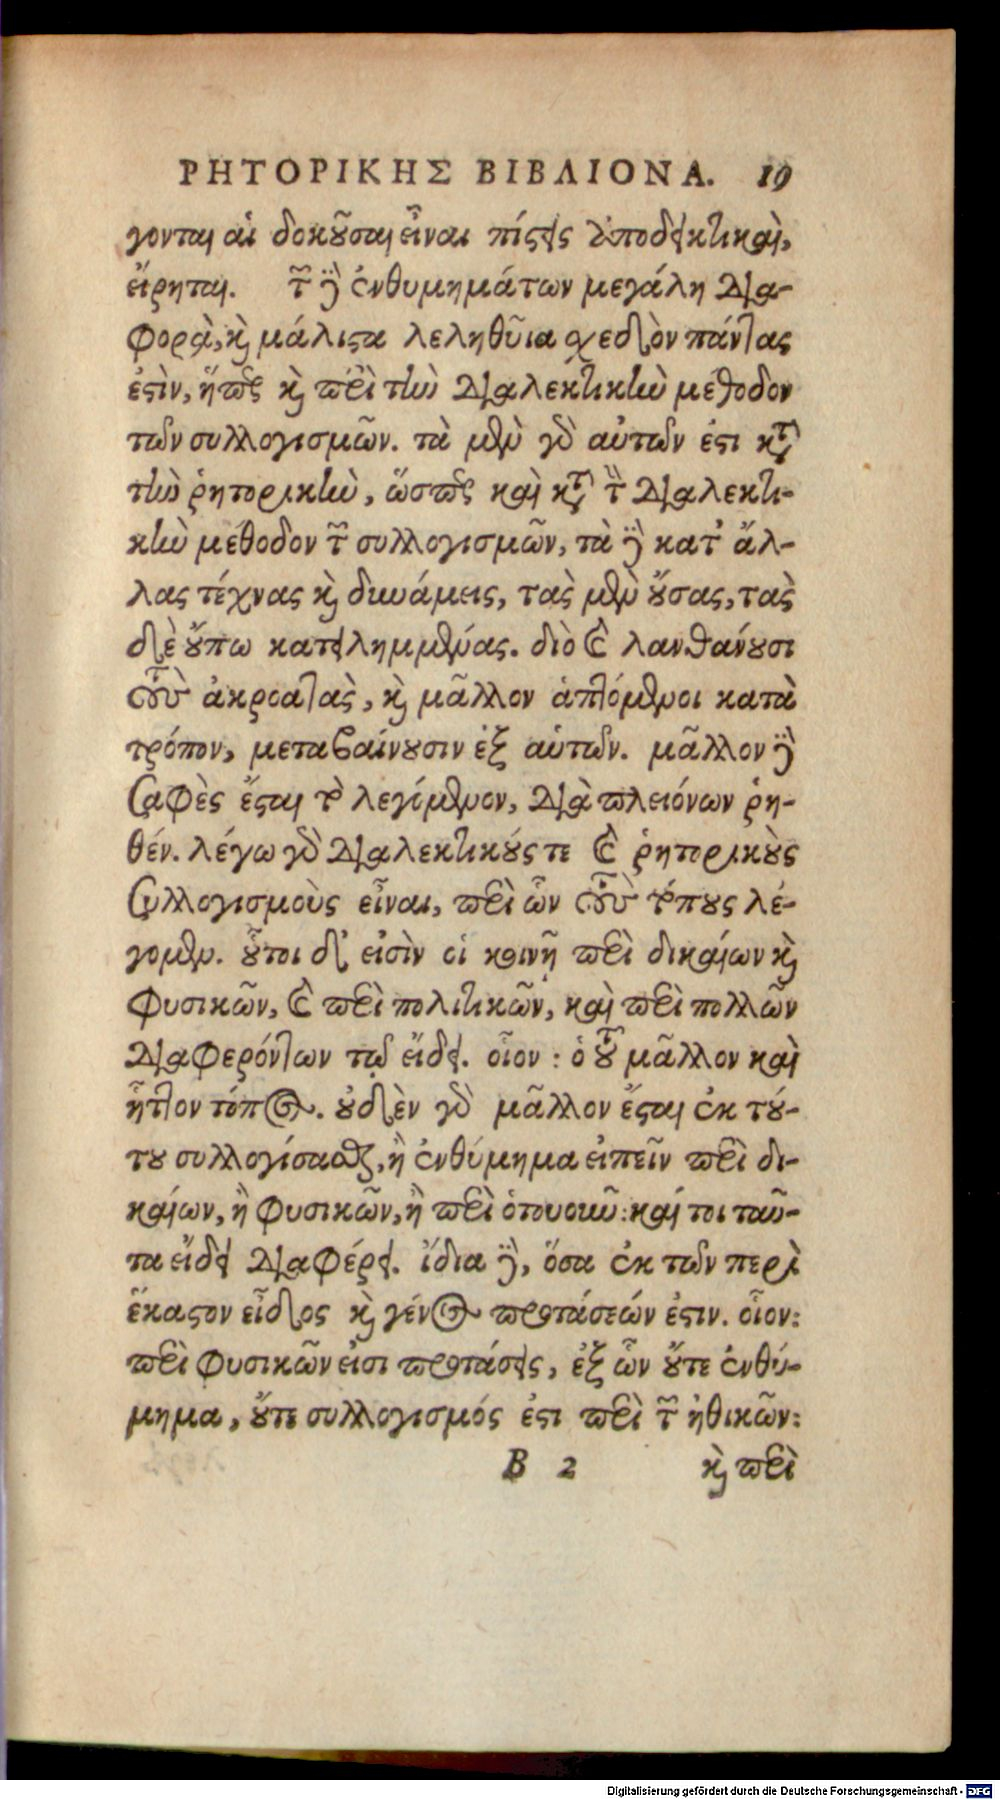 ΡΗΤΟΡΙΚΗΣ ΒΙΒΛΙΟΝ Α. 19
γονται αἱ δοκοῦσαι εἶναι πίστεις ἀποδεικτικαὶ,
εἴρηται. τῶν δὲ ἐνθυμημάτων μεγάλη δια-
φορὰ, καὶ μάλιστα λεληθυῖα σχεδὸν πάντας
ἐστὶν, ἥπερ καὶ περὶ τὴν διαλεκτικὴν μέθοδον
τῶν συλλογισμῶν. τὰ μὲν γὰρ αὐτῶν ἐστι κατὰ
τὴν ῥητορικὴν, ὥσπερ καὶ κατὰ τὴν διαλεκτι-
κὴν μέθοδον τῶν συλλογισμῶν, τὰ δὲ κατ' ἄλ-
λας τέχνας καὶ δυνάμεις, τὰς μὲν οὔσας, τὰς
δὲ οὔπω κατειλημμένας. διὸ καὶ λανθάνουσι
τοὺς ἀκροατὰς, καὶ μᾶλλον ἁπτόμενοι κατὰ
τρόπον, μεταβαίνουσιν ἐξ αὐτῶν. μᾶλλον δὲ
σαφὲς ἔσται τὸ λεγόμενον, διὰ πλειόνων ῥη-
θέν. λέγω γὰρ διαλεκτικούς τε καὶ ῥητορικοὺς
συλλογισμοὺς εἶναι, περὶ ὧν τοὺς τόπους λέ-
γομεν. οὗτοι δ' εἰσὶν οἱ κοινῇ περὶ δικαίων καὶ
φυσικῶν, καὶ περὶ πολιτικῶν, καὶ περὶ πολλῶν
διαφερόντων τῷ εἴδει. οἷον: ὁ τοῦ μᾶλλον καὶ
ἧττον τόπος. οὐδὲν γὰρ μᾶλλον ἔσται ἐκ τού-
του συλλογίσασθαι, ἢ ἐνθύμημα εἰπεῖν περὶ δι-
καίων, ἢ φυσικῶν, ἢ περὶ ὁτουοῦν: καί τοι ταῦ-
τα εἴδει διαφέρει. ἴδια δὲ, ὅσα ἐκ τῶν περὶ
ἕκαστον εἶδος καὶ γένος προτάσεών ἐστιν. οἷον:
περὶ φυσικῶν εἰσι προτάσεις, ἐξ ὧν οὔτε ἐνθύ-
μημα, οὔτε συλλογισμός ἐστι περὶ τῶν ἠθικῶν:
B 2 καὶ περὶ
Digitalisierung gefördert durch die Deutsche Forschungsgemeinschaft - DFG